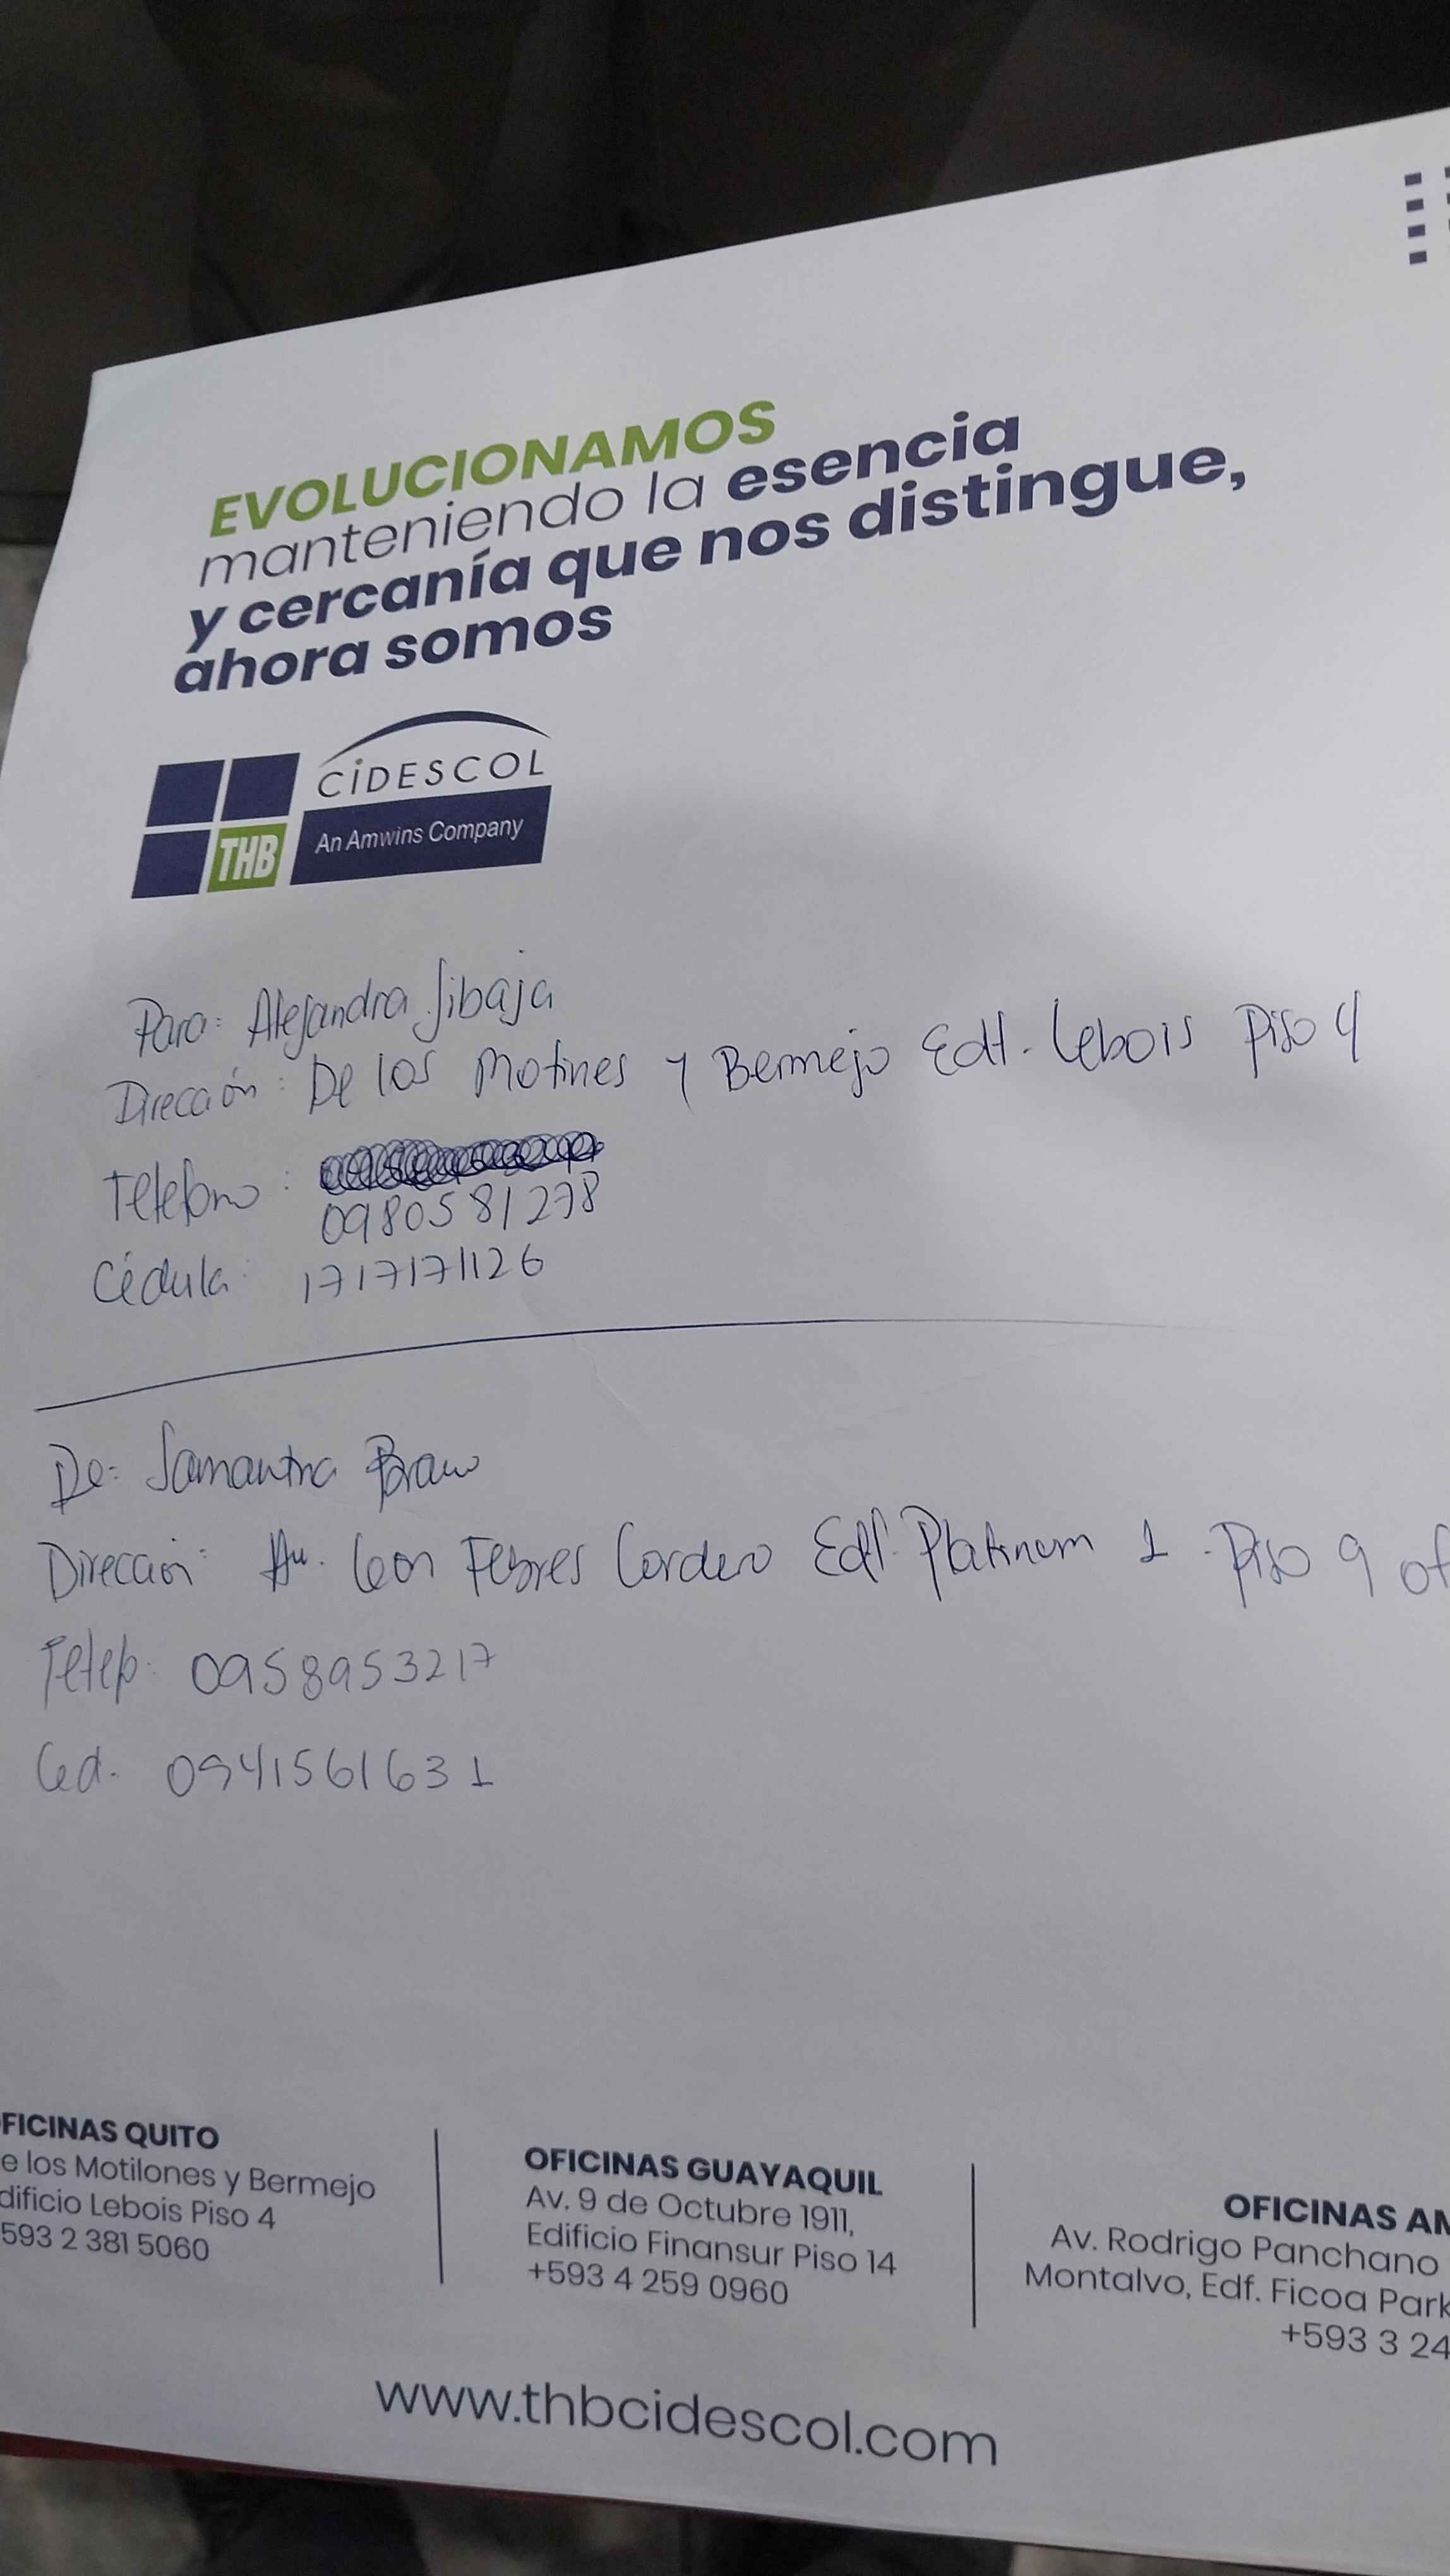 EVOLUCIONAMOS
manteniendo la esencia
y cercanía que nos distingue,
ahora somos
CIDESCOL
THB
An Amwins Company
Para: Alejandra Jibaja
Dirección: De los Motines y Bermejo Edf. Lebois Piso 4
Telefono:
0980581278
Cédula: 1717171126
De: Samantha Bravo
Dirección: Av. Leon Febres Cordero Edf. Platinum 1 - Piso 9 of
Telef: 0958953217
Ced. 0941561631
FICINAS QUITO
e los Motilones y Bermejo
dificio Lebois Piso 4
593 2 381 5060
OFICINAS GUAYAQUIL
Av. 9 de Octubre 1911,
Edificio Finansur Piso 14
+593 4 259 0960
OFICINAS AM
Av. Rodrigo Panchano
Montalvo, Edf. Ficoa Park
+593 3 24
www.thbcidescol.com